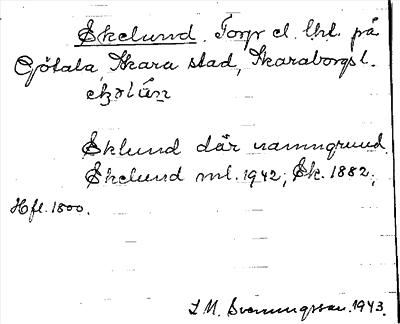 Ekelund. Torp el. lht. på
Götala, Skara stad, Skaraborgs l.
Eklund där namngrund.
Ekelund ml. 1942; Ek. 1882;
Hfl. 1800.
S. M. Svenungsson. 1943.